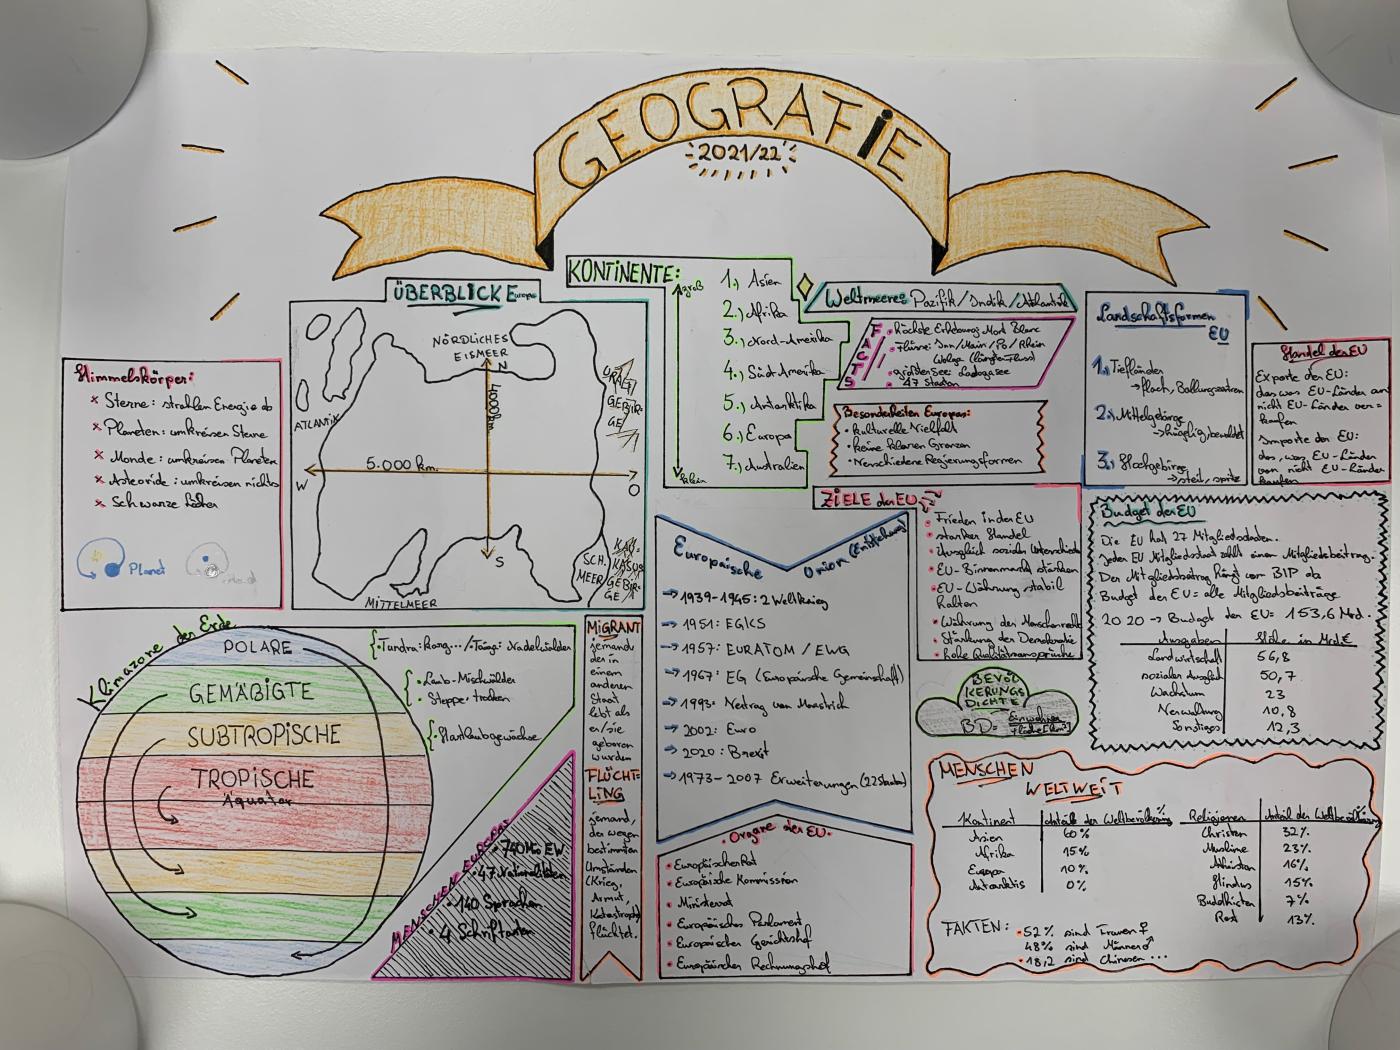 GEOGRAFIE
2021/22
Himmelskörper:
× Sterne: strahlen Energie ab
× Planeten: umkreisen Sterne
× Monde: umkreisen Planeten
× Asteroide: umkreisen nichts
× Schwarze Löcher
Planet
ÜBERBLICK Europa
NÖRDLICHES
EISMEER
N
4000 km
ATLANTIK
URAL
GEBIR-
GE
5.000 km
W
O
S
SCH.
MEER
KAU-
KASUS
GEBIR-
GE
MITTELMEER
KONTINENTE:
groß
1.) Asien
2.) Afrika
3.) Nord-Amerika
4.) Süd-Amerika
5.) Antarktika
6.) Europa
7.) Australien
klein
Weltmeere: Pazifik/Indik/Atlantik
FACTS
• höchste Erhebung: Mont Blanc
• Flüsse: Inn/Main/Po/Rhein
Wolga (längster Fluss)
• größter See: Ladogasee
• 47 Staaten
Besonderheiten Europas:
• kulturelle Vielfalt
• keine klaren Grenzen
• Verschiedene Regierungsformen
Landschaftsformen
EU
1.) Tiefländer
→ flach, Ballungszentren
2.) Mittelgebirge
→ hügelig, bewaldet
3.) Hochgebirge
→ steil, spitz
Handel der EU
Exporte der EU:
das was EU-Länder an
nicht EU-Länder ver=
kaufen
Importe der EU:
das, was EU-Länder
von nicht EU-Länder
kaufen
ZIELE der EU
• Frieden in der EU
• starker Handel
• Ausgleich sozialer Unterschiede
• EU-Binnenmarkt stärken
• EU-Währung stabil
halten
• Währung der Menschenrechte
• Stärkung der Demokratie
• hohe Qualitätsansprüche
Budget der EU
Die EU hat 27 Mitgliedsstaaten.
Jeder EU Mitgliedsstaat zahlt einen Mitgliedsbeitrag.
Der Mitgliedsbeitrag hängt vom BIP ab
Budget der EU = alle Mitgliedsbeiträge
2020 → Budget der EU: 153,6 Mrd.
Ausgaben Höhe in Mrd €
Landwirtschaft 56,8
sozialer Ausgleich 50,7
Wachstum 23
Verwaltung 10,8
Sonstiges 12,3
Europäische Union (Entstehung)
→ 1939-1945: 2 Weltkrieg
→ 1951: EGKS
→ 1957: EURATOM / EWG
→ 1967: EG (Europäische Gemeinschaft)
→ 1993: Vertrag von Maastrich
→ 2002: Euro
→ 2020: Brexit
→ 1973-2007 Erweiterungen (22 Staaten)
BEVÖL
KERUNGS
DICHTE
BD= Einwohner
Fläche [km²]
Klimazone der Erde
POLARE
GEMÄßIGTE
SUBTROPISCHE
TROPISCHE
Äquator
Tundra: karg.../Taiga: Nadelwälder
• Laub-Mischwälder
• Steppe: trocken
• Hartlaubgewächse
MENSCHEN EUROPAS
• 740 Mio EW
• 47 Nationalitäten
• 140 Sprachen
• 4 Schriftarten
MIGRANT
jemand
der in
einem
anderen
Staat
lebt als
er/sie
geboren
wurden
FLÜCHT-
LING
jemand,
der wegen
bestimmten
Umständen
(Krieg,
Armut,
Katastroph)
flüchtet.
Organe der EU:
• Europäischer Rat
• Europäische Kommission
• Ministerrat
• Europäisches Parlament
• Europäischer Gerichtshof
• Europäischer Rechnungshof
MENSCHEN
WELTWEIT
Kontinent Anteile der Weltbevölkerung %
Asien 60%
Afrika 15%
Europa 10%
Antarktis 0%
Religionen Anteil der Weltbevölkerung %
Christen 32%
Muslime 23%
Atheisten 16%
Hindus 15%
Buddhisten 7%
Rest 13%
FAKTEN: • 52% sind Frauen ♀
48% sind Männer ♂
• 18,2 sind Chinesen ...